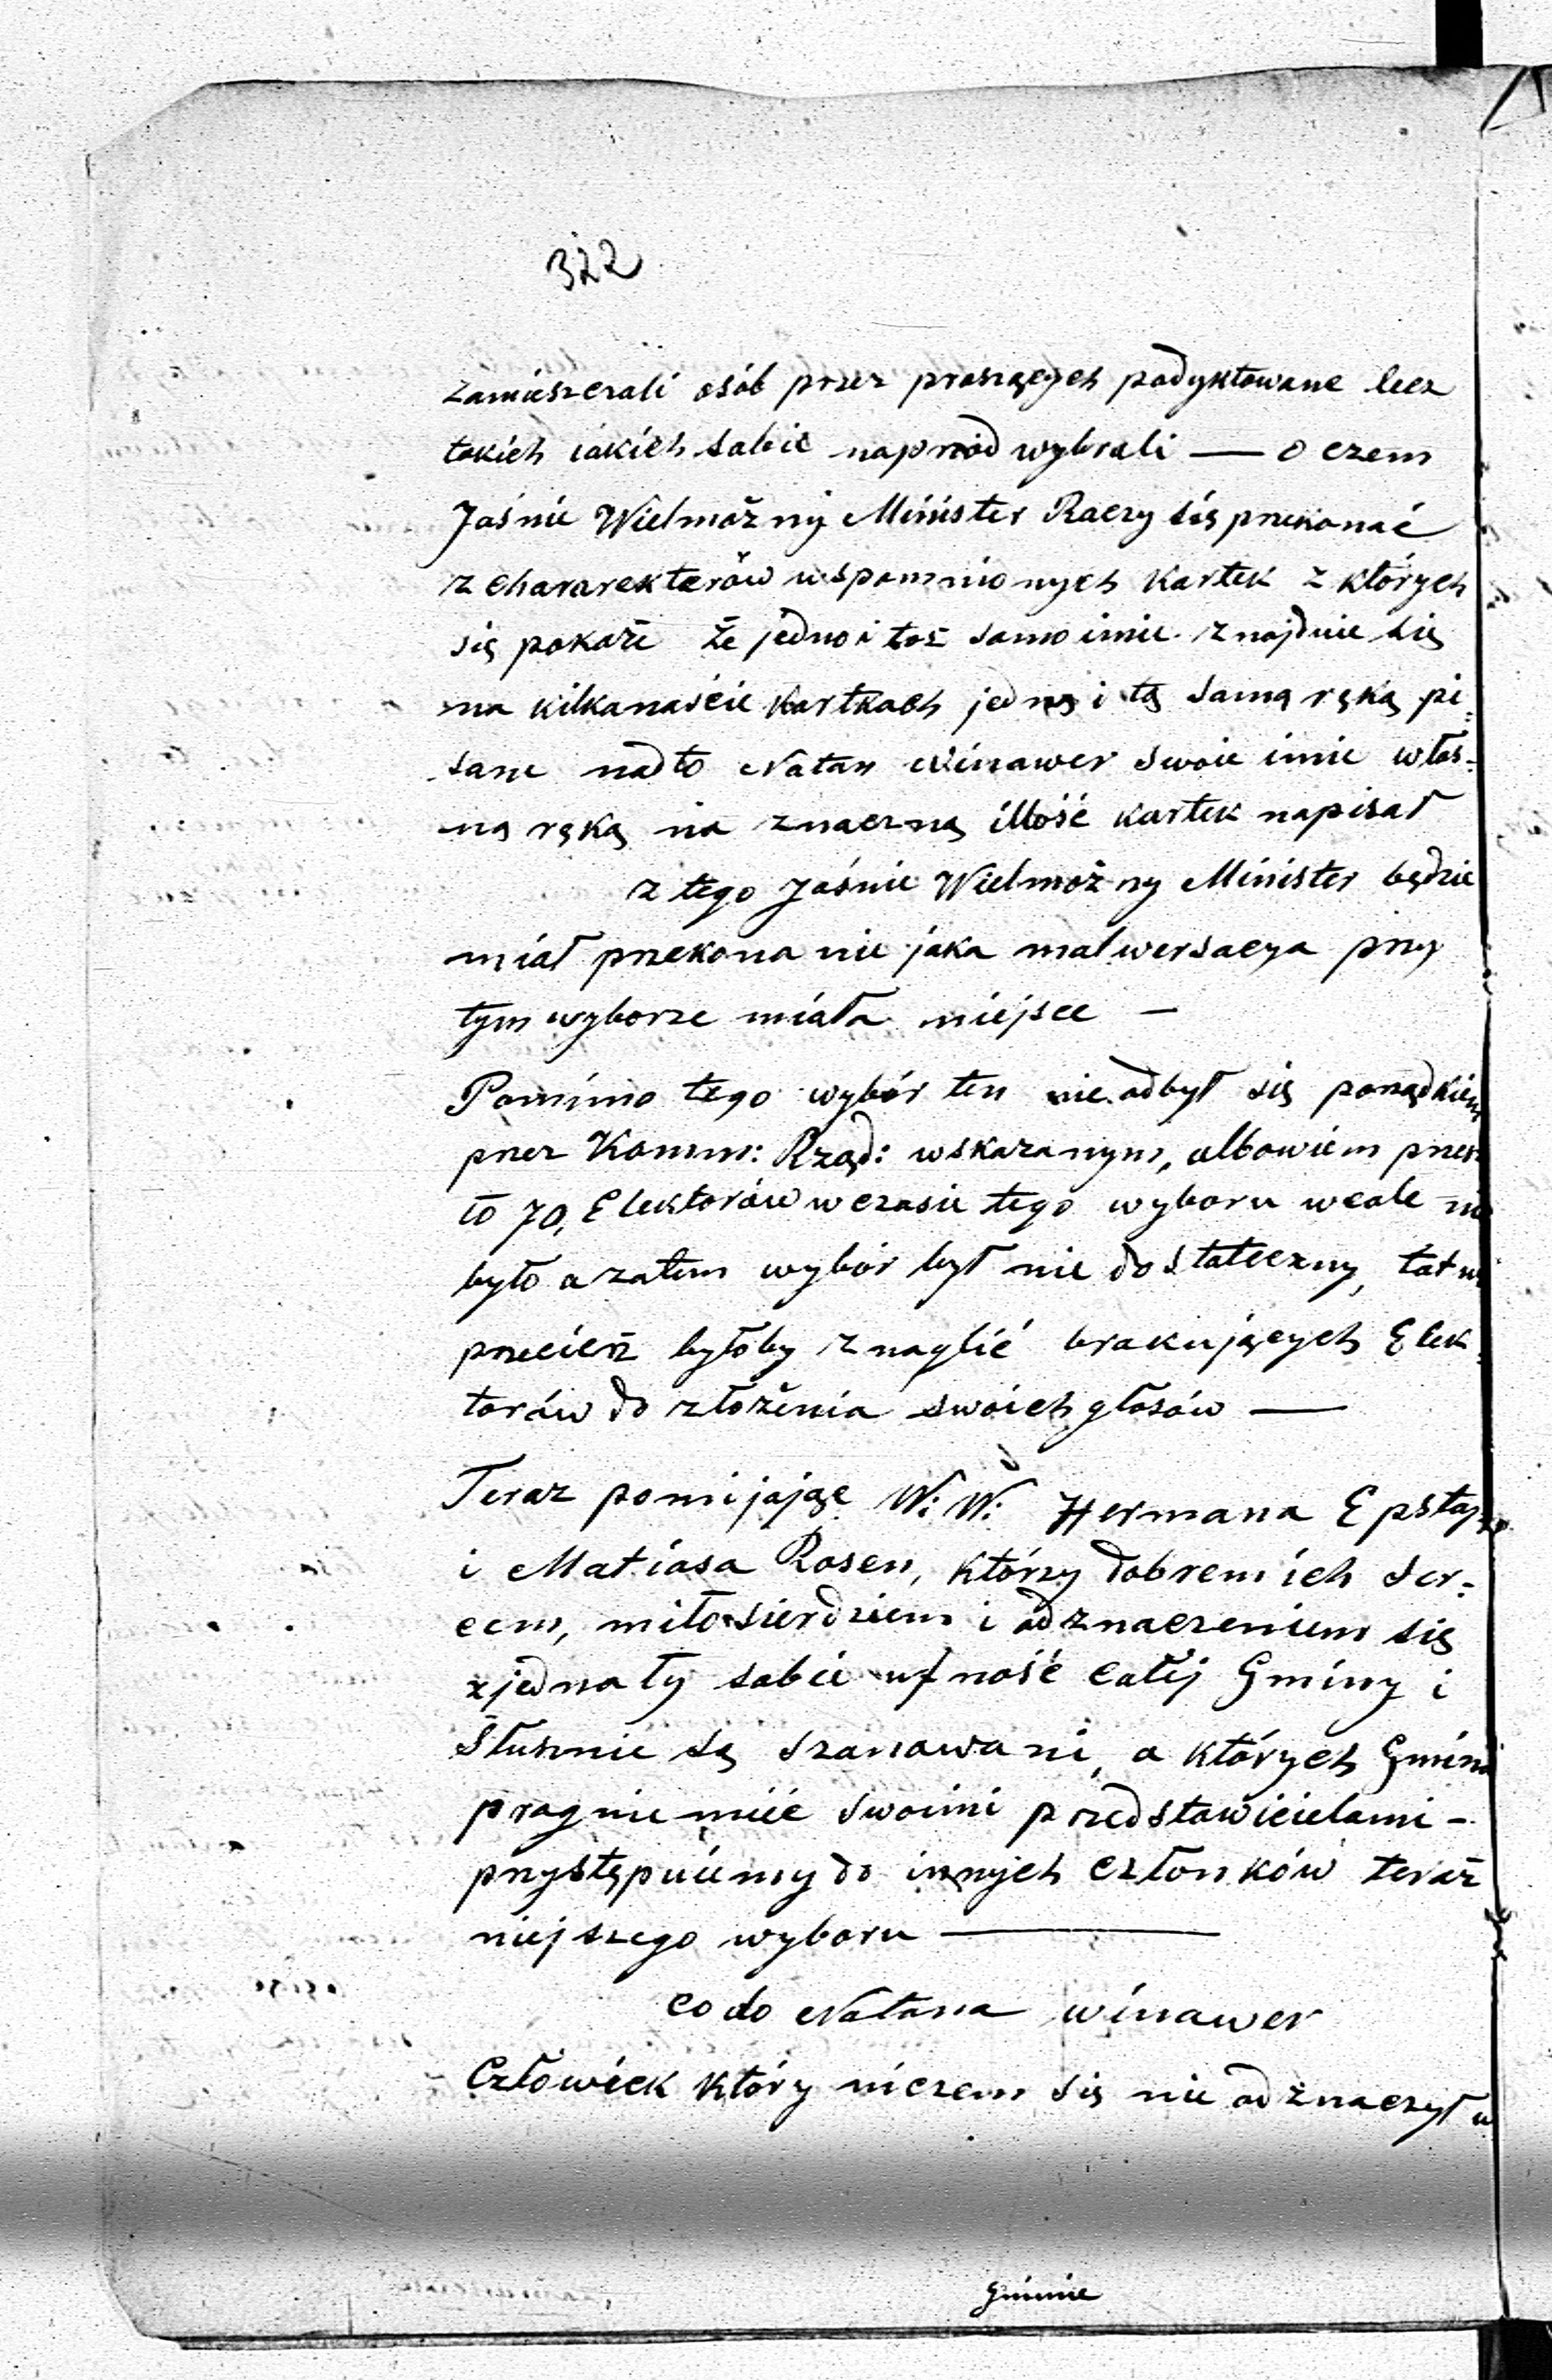 322
zamieszczali osób przez proszących podyktowane lecz
takich iakich sobie naprzód wybrali — o czem
Jaśnie Wielmożny Minister Raczy się przekonać
z chararekterów wspomnionych kartek z których
się pokaże że jedno i toż samo imie znajdzie się
na kilkanaście kartkach jedną i tą samą ręką pi=
sane nadto Natan Winawer swoie imie włas=
ną ręką na znaczną illość kartek napisał
z tego Jaśnie Wielmożny Minister będzie
miał przekonanie jaka malwersacya przy
tym wyborze miała miejsce —
Pomimo tego wybór ten nie odbył się porządkiem
przez Komm: Rząd: wskazanym, albowiem przesz
to 70, Elektorów w czasie tego wyboru wcale nie
było a zatem wybór był nie dostateczny, łatwo
przecież byłoby znaglić brakujących Elek
torów do złożenia swoich głosów —
Teraz pomijając W: W: Hermana Epstajn
i Matiasa Rosen, którzy dobrem ich ser=
cem, miłosierdziem i odznaczeniem się
zjednały sobie ufność całej Gminy i
Słusznie są szanowani, a których Gmina
pragnie mieć swoimi przedstawicielami -
przystępuiemy do innych członków teraz
niejszego wyboru —
co do Natana Winawer
Człowiek który niczem się nie odznaczył w
Gminie